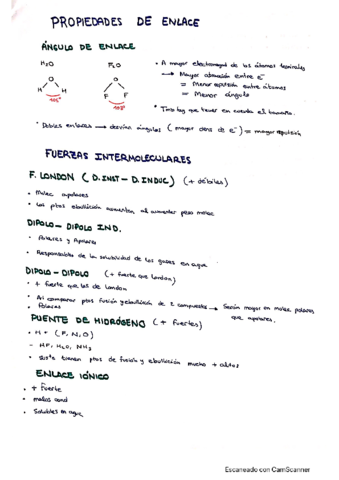 PROPIEDADES DE ENLACE
ÁNGULO DE ENLACE
H₂O
F₂O
O
H H
105°
O
F F
103°
• A mayor electronegat de los átomos terminales
→ Mayor atracción entre e⁻
= Menor repulsión entre átomos
= Menor ángulo
* Tmb hay que tener en cuenta el tamaño.
* Dobles enlaces → desvían ángulos (mayor dens de e⁻) = mayor repulsión
FUERZAS INTERMOLECULARES
F. LONDON (D. INST - D. INDUC) (+ débiles)
• Molec apolares
• Los ptos ebullición aumentan, al aumentar peso molec
DIPOLO - DIPOLO IND.
• Polares y Apolares
• Responsables de la solubilidad de los gases en agua
DIPOLO - DIPOLO (+ fuerte que london)
• + fuerte que las de london
• Al comparar ptos fusión y ebullición de 2 compuestos → Serán mayor en molec polares
que apolares.
PUENTE DE HIDRÓGENO (+ fuertes)
• H + (F, N, O)
- HF, H₂O, NH₃
• sus^s tienen ptos de fusión y ebullición mucho + altos
ENLACE IÓNICO
• + Fuerte
• malos cond
• Solubles en agua
Escaneado con CamScanner